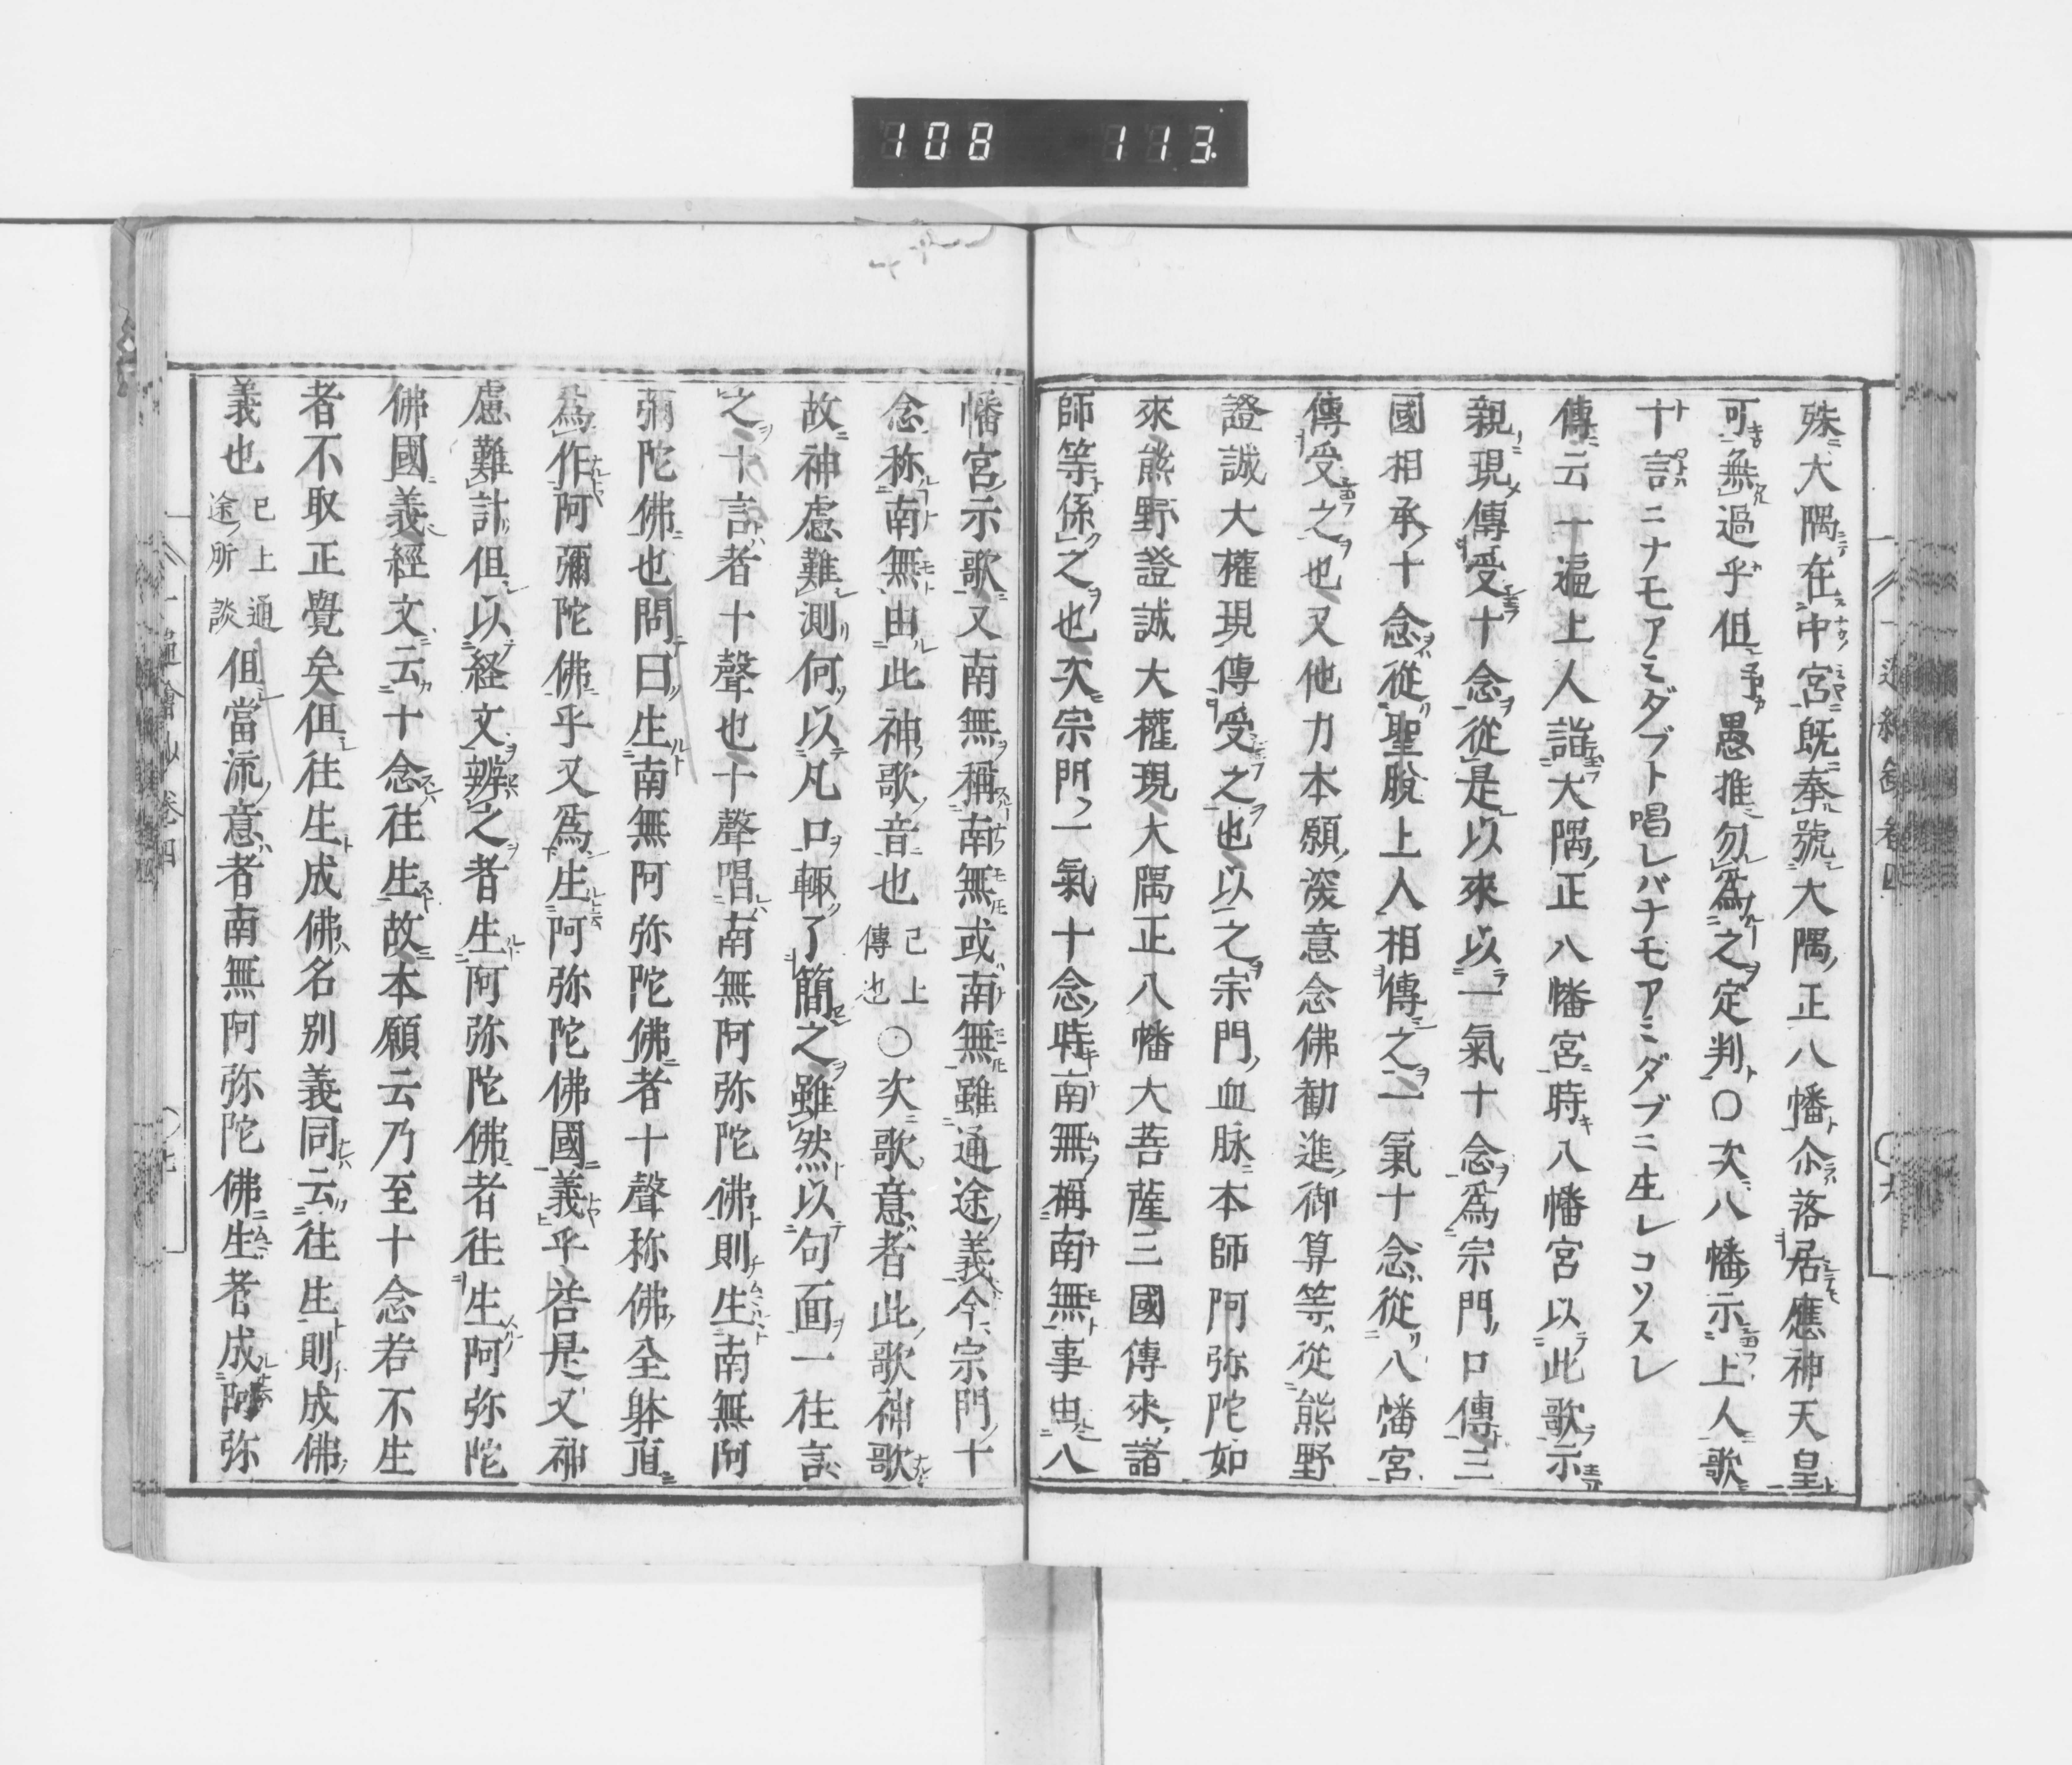 108 113
殊大隅在中宮既奉號大隅正八幡尒落居應神天皇
可無過乎但愚推勿為之定判〇次八幡示上人歌
十言ニナモアミダブト唱レバナモアミダブニ生レコソスレ
傳云一遍上人詣大隅正八幡宮時八幡宮以此歌示
親現傳受十念從是以來以一氣十念為宗門口傳三
國相承十念從聖脫上人相傳之一氣十念從八幡宮
傳受之也又他力本願深意念佛勸進御算等從熊野
證誠大權現傳受之也以之宗門血脉本師阿弥陀如
來熊野證誠大權現大隅正八幡大菩薩三國傳來諸
師等係之也次宗門一氣十念時南無稱南無事由八
幡宮示歌又南無稱南無或南無雖通途義今宗門十
念称南無由此神歌音也
已上
傳也
〇次歌意者此歌神歌
故神慮難測何以凡口輙了簡之雖然以句面一往言
之十言者十聲也十聲唱南無阿弥陀佛則生南無阿
彌陀佛也問曰生南無阿弥陀佛者十聲称佛全躰直
為作阿彌陀佛乎又為生阿弥陀佛國義乎荅是又神
慮難計但以経文辨之者生阿弥陀佛者往生阿弥陀
佛國義經文云十念往生故本願云乃至十念若不生
者不取正覺矣但往生成佛名別義同云往生則成佛
義也
已上通
途所談
但當流意者南無阿弥陀佛生者成阿弥